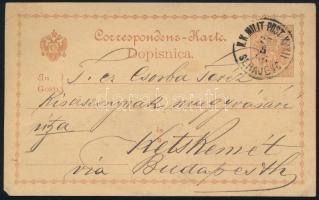 Correspondenz-Karte.
Dopisnica.
K.K. MILIT. POST
SARAJEVO
An
T. cz Csorba Teréz
Kisasszonynak
utza
in
Ketskemét
via Budapesth